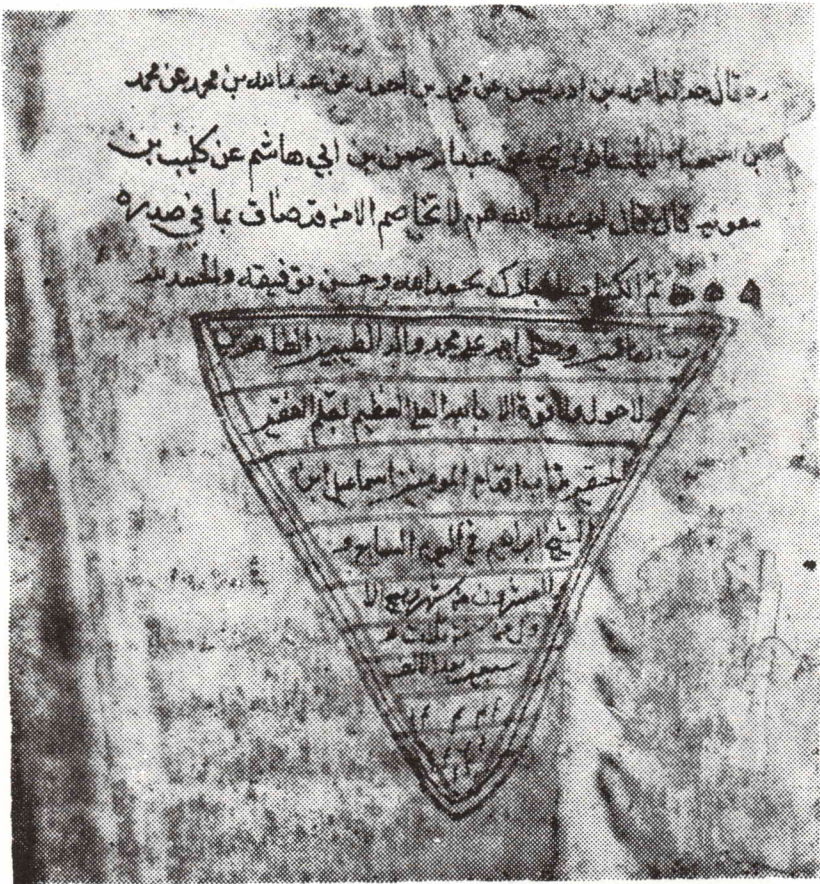 ره قال حدثنا احمد بن ادريس عن محمد بن احمد عن عبد الله بن محمد عن محمد
بن اسمعيل النيسابوري عن عبد الرحمن بن ابي هاشم عن كليب بن
معويه قال قال ابو عبد الله لا تخاصم الا من قد ضاق بما في صدره
تم الكتاب المبارك بحمد الله وحسن توفيقه والحمد لله
وصلى الله على محمد واله الطيبين الطاهرين
ولا حول ولا قوة الا بالله العلي العظيم بقلم الفقير
الحقير تراب اقدام المومنين اسماعيل ابن
الشيخ ابراهيم في اليوم السابع من
والعشرون من شهر ربيع الا
ول من سنة ثلاث و
سبعين بعد الالف